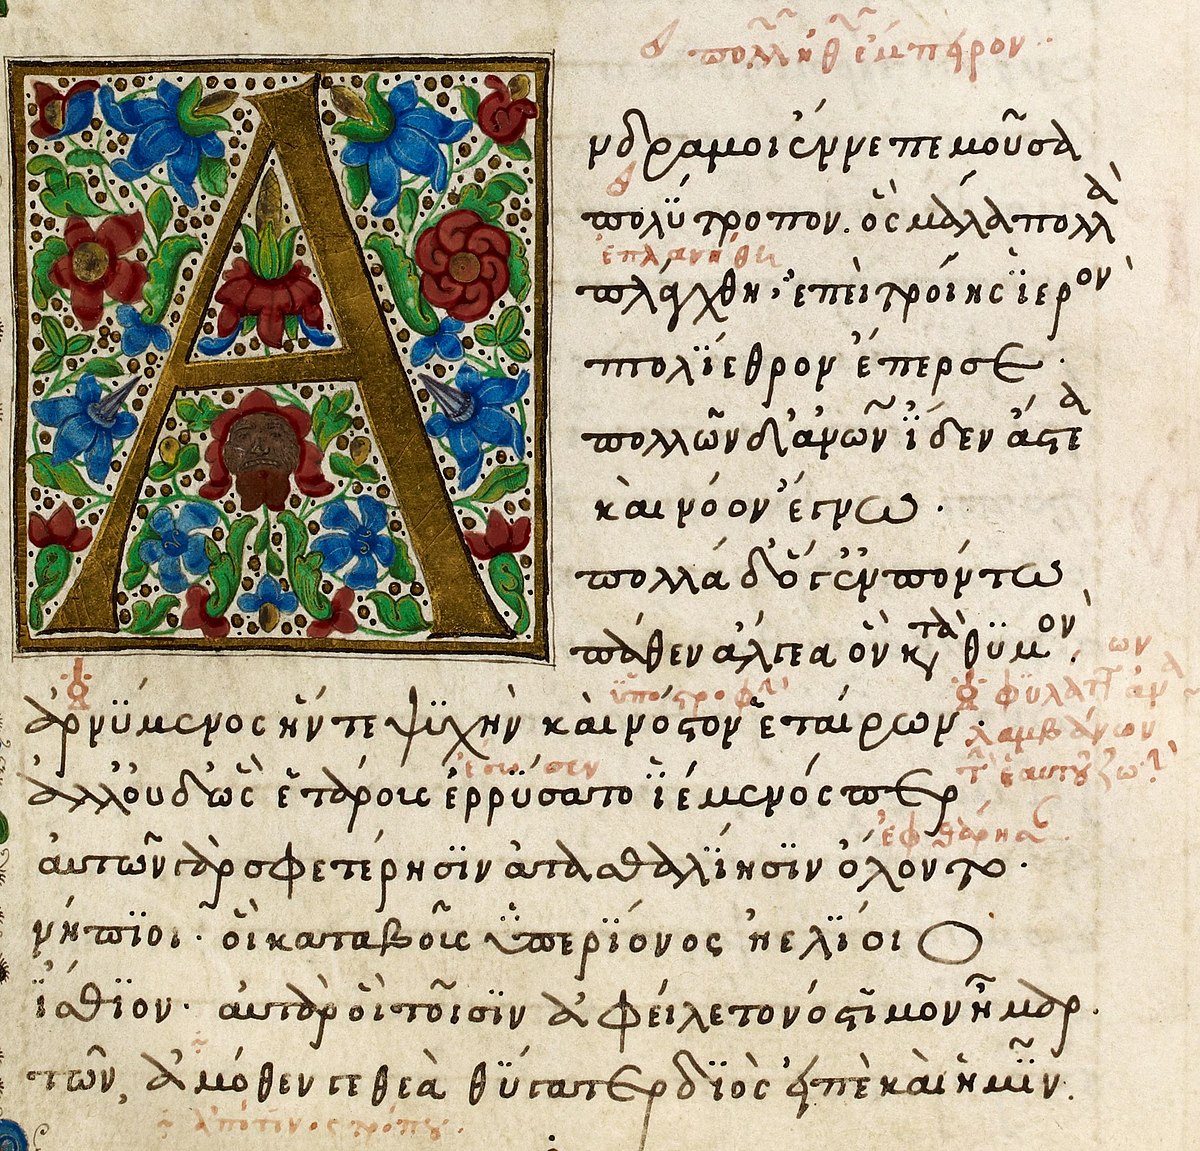 πολλῶν ἔμπειρον
Α
νδρα μοι ἔννεπε μοῦσα
πολύτροπον. ὃς μάλα πολλὰ
ἐπλανήθη
πλάγχθη, ἐπεὶ τροίης ἱερὸν
πτολίεθρον ἔπερσε.
πολλῶν δ' ἀνθρώπων ἴδεν ἄστεα
καὶ νόον ἔγνω.
πολλὰ δ' ὅγ' ἐν πόντω
πάθεν ἄλγεα ὃν κατὰ θυμόν.
ὑποστροφὴν
ἀρνύμενος ἥν τε ψυχὴν καὶ νόστον ἑταίρων.
λαμβάνων
ἔσωσεν
ἀλλ' οὐδ' ὣς ἑτάροις ἐρρύσατο ἱέμενός περ
ἐφθάρησαν
αὐτῶν γὰρ σφετέρησιν ἀτασθαλίησιν ὄλοντο.
νήπιοι. οἳ κατὰ βοῦς ὑπερίονος ἠελίοιο
ἤσθιον. αὐτὰρ ὃ τοῖσιν ἀφείλετο νόστιμον ἦμαρ.
τῶν, ἀμόθεν γε θεὰ θύγατερ διὸς εἰπὲ καὶ ἡμῖν.
ἀπό τινος τρόπου.